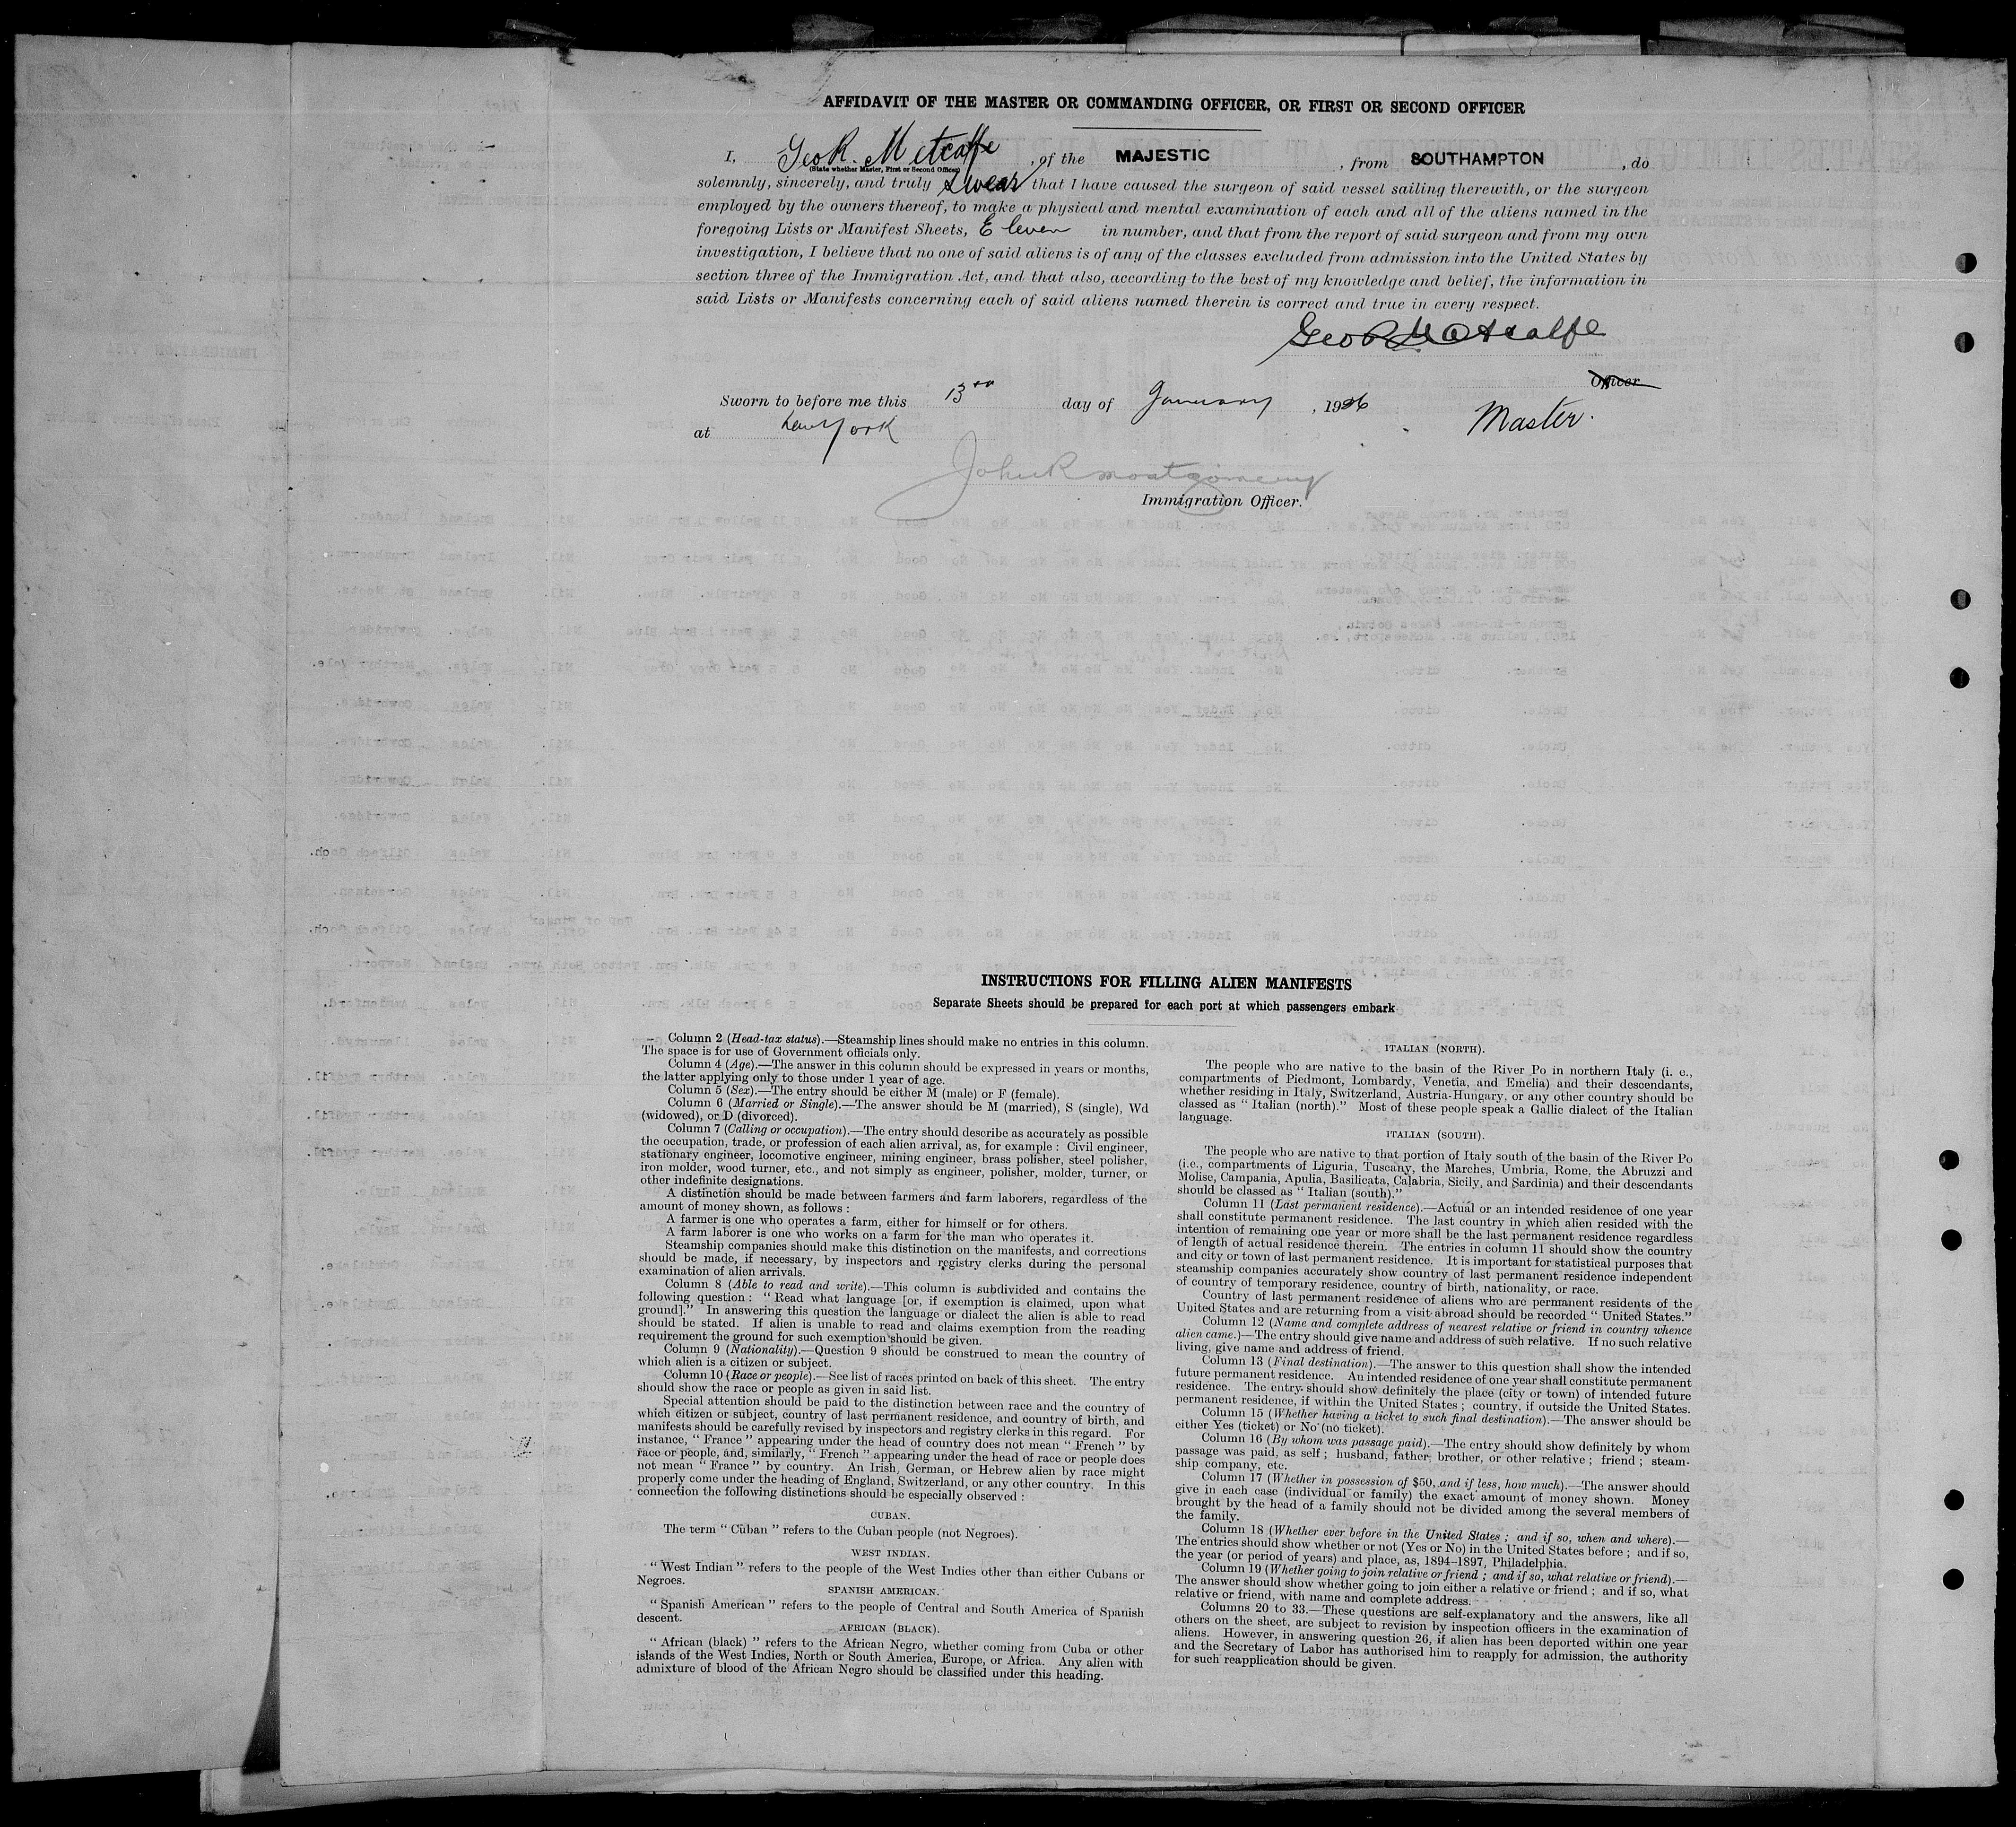 AFFIDAVIT OF THE MASTER OR COMMANDING OFFICER, OR FIRST OR SECOND OFFICER
I, Geo R. Metcalfe, of the MAJESTIC, from SOUTHAMPTON, do
(State whether Master, First or Second Officer)
solemnly, sincerely, and truly swear that I have caused the surgeon of said vessel sailing therewith, or the surgeon
employed by the owners thereof, to make a physical and mental examination of each and all of the aliens named in the
foregoing Lists or Manifest Sheets, Eleven in number, and that from the report of said surgeon and from my own
investigation, I believe that no one of said aliens is of any of the classes excluded from admission into the United States by
section three of the Immigration Act, and that also, according to the best of my knowledge and belief, the information in
said Lists or Manifests concerning each of said aliens named therein is correct and true in every respect.
Geo R Metcalfe
Officer
Sworn to before me this 13 day of January, 1926
Master.
at New York
John R Montgomery
Immigration Officer.
INSTRUCTIONS FOR FILLING ALIEN MANIFESTS
Separate Sheets should be prepared for each port at which passengers embark
Column 2 (Head-tax status).—Steamship lines should make no entries in this column.
The space is for use of Government officials only.
Column 4 (Age).—The answer in this column should be expressed in years or months,
the latter applying only to those under 1 year of age.
Column 5 (Sex).—The entry should be either M (male) or F (female).
Column 6 (Married or Single).—The answer should be M (married), S (single), Wd
(widowed), or D (divorced).
Column 7 (Calling or occupation).—The entry should describe as accurately as possible
the occupation, trade, or profession of each alien arrival, as, for example : Civil engineer,
stationary engineer, locomotive engineer, mining engineer, brass polisher, steel polisher,
iron molder, wood turner, etc., and not simply as engineer, polisher, molder, turner, or
other indefinite designations.
A distinction should be made between farmers and farm laborers, regardless of the
amount of money shown, as follows :
A farmer is one who operates a farm, either for himself or for others.
A farm laborer is one who works on a farm for the man who operates it.
Steamship companies should make this distinction on the manifests, and corrections
should be made, if necessary, by inspectors and registry clerks during the personal
examination of alien arrivals.
Column 8 (Able to read and write).—This column is subdivided and contains the
following question : “ Read what language [or, if exemption is claimed, upon what
ground].” In answering this question the language or dialect the alien is able to read
should be stated. If alien is unable to read and claims exemption from the reading
requirement the ground for such exemption should be given.
Column 9 (Nationality).—Question 9 should be construed to mean the country of
which alien is a citizen or subject.
Column 10 (Race or people).—See list of races printed on back of this sheet. The entry
should show the race or people as given in said list.
Special attention should be paid to the distinction between race and the country of
which citizen or subject, country of last permanent residence, and country of birth, and
manifests should be carefully revised by inspectors and registry clerks in this regard. For
instance, “ France ” appearing under the head of country does not mean “ French ” by
race or people, and, similarly, “ French ” appearing under the head of race or people does
not mean “ France ” by country. An Irish, German, or Hebrew alien by race might
properly come under the heading of England, Switzerland, or any other country. In this
connection the following distinctions should be especially observed :
CUBAN.
The term “ Cuban ” refers to the Cuban people (not Negroes).
WEST INDIAN.
“ West Indian ” refers to the people of the West Indies other than either Cubans or
Negroes.
SPANISH AMERICAN.
“ Spanish American ” refers to the people of Central and South America of Spanish
descent.
AFRICAN (BLACK).
“ African (black) ” refers to the African Negro, whether coming from Cuba or other
islands of the West Indies, North or South America, Europe, or Africa. Any alien with
admixture of blood of the African Negro should be classified under this heading.
ITALIAN (NORTH).
The people who are native to the basin of the River Po in northern Italy (i. e.,
compartments of Piedmont, Lombardy, Venetia, and Emelia) and their descendants,
whether residing in Italy, Switzerland, Austria-Hungary, or any other country should be
classed as “ Italian (north).” Most of these people speak a Gallic dialect of the Italian
language.
ITALIAN (SOUTH).
The people who are native to that portion of Italy south of the basin of the River Po
(i.e., compartments of Liguria, Tuscany, the Marches, Umbria, Rome, the Abruzzi and
Molise, Campania, Apulia, Basilicata, Calabria, Sicily, and Sardinia) and their descendants
should be classed as “ Italian (south).”
Column 11 (Last permanent residence).—Actual or an intended residence of one year
shall constitute permanent residence. The last country in which alien resided with the
intention of remaining one year or more shall be the last permanent residence regardless
of length of actual residence therein. The entries in column 11 should show the country
and city or town of last permanent residence. It is important for statistical purposes that
steamship companies accurately show country of last permanent residence independent
of country of temporary residence, country of birth, nationality, or race.
Country of last permanent residence of aliens who are permanent residents of the
United States and are returning from a visit abroad should be recorded “ United States.”
Column 12 (Name and complete address of nearest relative or friend in country whence
alien came.)—The entry should give name and address of such relative. If no such relative
living, give name and address of friend.
Column 13 (Final destination).—The answer to this question shall show the intended
future permanent residence. An intended residence of one year shall constitute permanent
residence. The entry should show definitely the place (city or town) of intended future
permanent residence, if within the United States ; country, if outside the United States.
Column 15 (Whether having a ticket to such final destination).—The answer should be
either Yes (ticket) or No (no ticket).
Column 16 (By whom was passage paid).—The entry should show definitely by whom
passage was paid, as self ; husband, father, brother, or other relative ; friend ; steam-
ship company, etc.
Column 17 (Whether in possession of $50, and if less, how much).—The answer should
give in each case (individual or family) the exact amount of money shown. Money
brought by the head of a family should not be divided among the several members of
the family.
Column 18 (Whether ever before in the United States ; and if so, when and where).—
The entries should show whether or not (Yes or No) in the United States before ; and if so,
the year (or period of years) and place, as, 1894–1897, Philadelphia.
Column 19 (Whether going to join relative or friend ; and if so, what relative or friend).—
The answer should show whether going to join either a relative or friend ; and if so, what
relative or friend, with name and complete address.
Columns 20 to 33.—These questions are self-explanatory and the answers, like all
others on the sheet, are subject to revision by inspection officers in the examination of
aliens. However, in answering question 26, if alien has been deported within one year
and the Secretary of Labor has authorised him to reapply for admission, the authority
for such reapplication should be given.